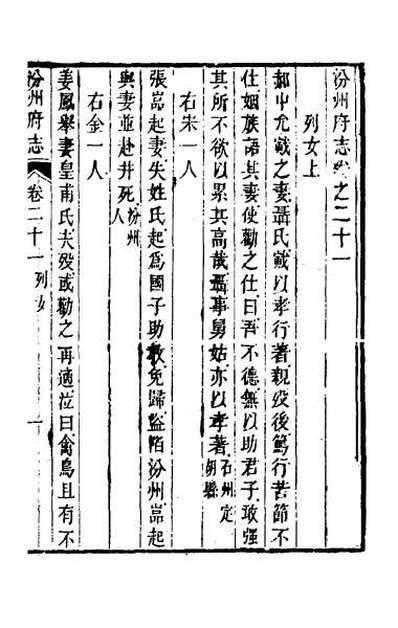 汾州府志卷之二十一
列女上
郝中允戭之妻聶氏戭以孝行著親歿後篤行苦節不
仕姻族語其妻使勸之仕曰吾不德無以助君子敢强
其所不欲以累其高哉聶事舅姑亦以孝著石州定胡縣
右宋一人
張嵓起妻失姓氏起爲國子助敎免歸盜陷汾州嵓起
與妻並赴井死汾州人
右金一人
姜鳳舉妻皇甫氏夫歿或勸之再適泣曰禽鳥且有不
汾州府志 卷二十一 列女 一